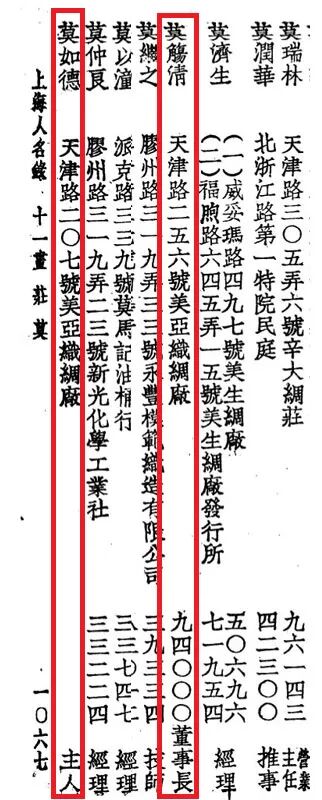 莫瑞林 天津路三〇五弄六號辛大綢莊 九六一四三 營業主任
莫潤華 北浙江路第一特院民庭 四二三〇〇 推事
莫濟生 (一)威妥瑪路四九七號美生綢廠 五〇六九六 經理
(二)福煦路六四五弄一五號美生綢廠發行所 七一九五四
莫觴清 天津路二五六號美亞織綢廠 九四〇〇〇 董事長
莫繼之 膠州路三一九弄三三號永豐模範織造有限公司 三九三三四 技師
莫以潼 派克路三三九號莫馬記油桶行 三三七四七 經理
莫仲良 膠州路三一九弄二三號新光化學工業社 三三二二四 經理
莫如德 天津路二〇七號美亞織綢廠 主人
上海人名錄 十一畫 莊 莫 一〇六七